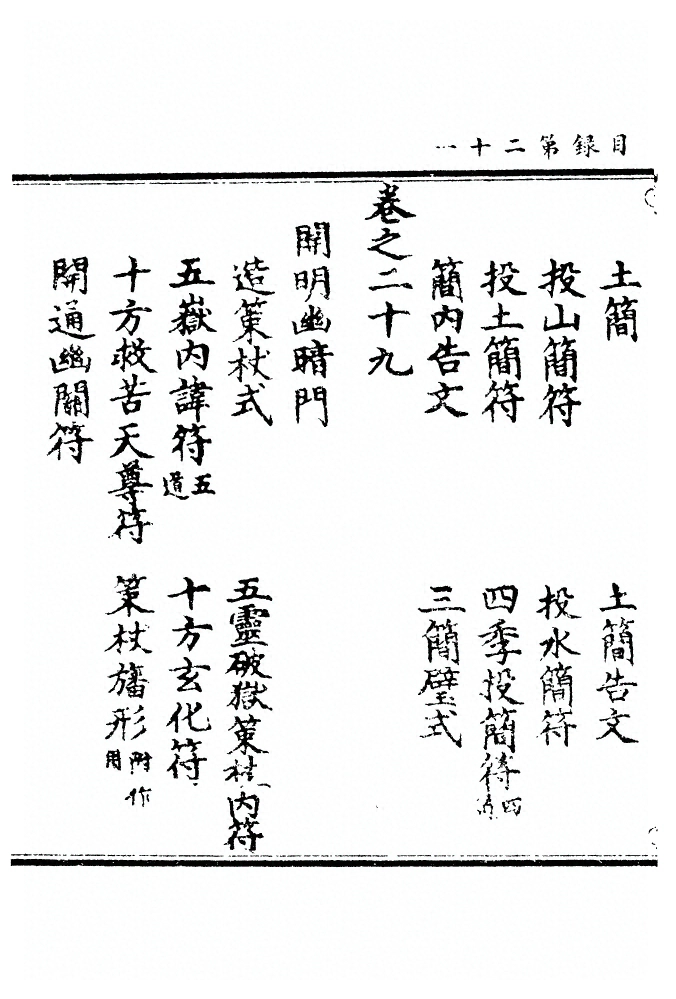 目錄第二十一
土簡 土簡告文
投山簡符 投水簡符
投土簡符 四季投簡符四道
簡內告文 三簡璧式
卷之二十九
開明幽暗門
造策杖式 五靈破獄策杖內符
五嶽內諱符五道 十方玄化符
十方救苦天尊符 策杖旛形附作用
開通幽關符